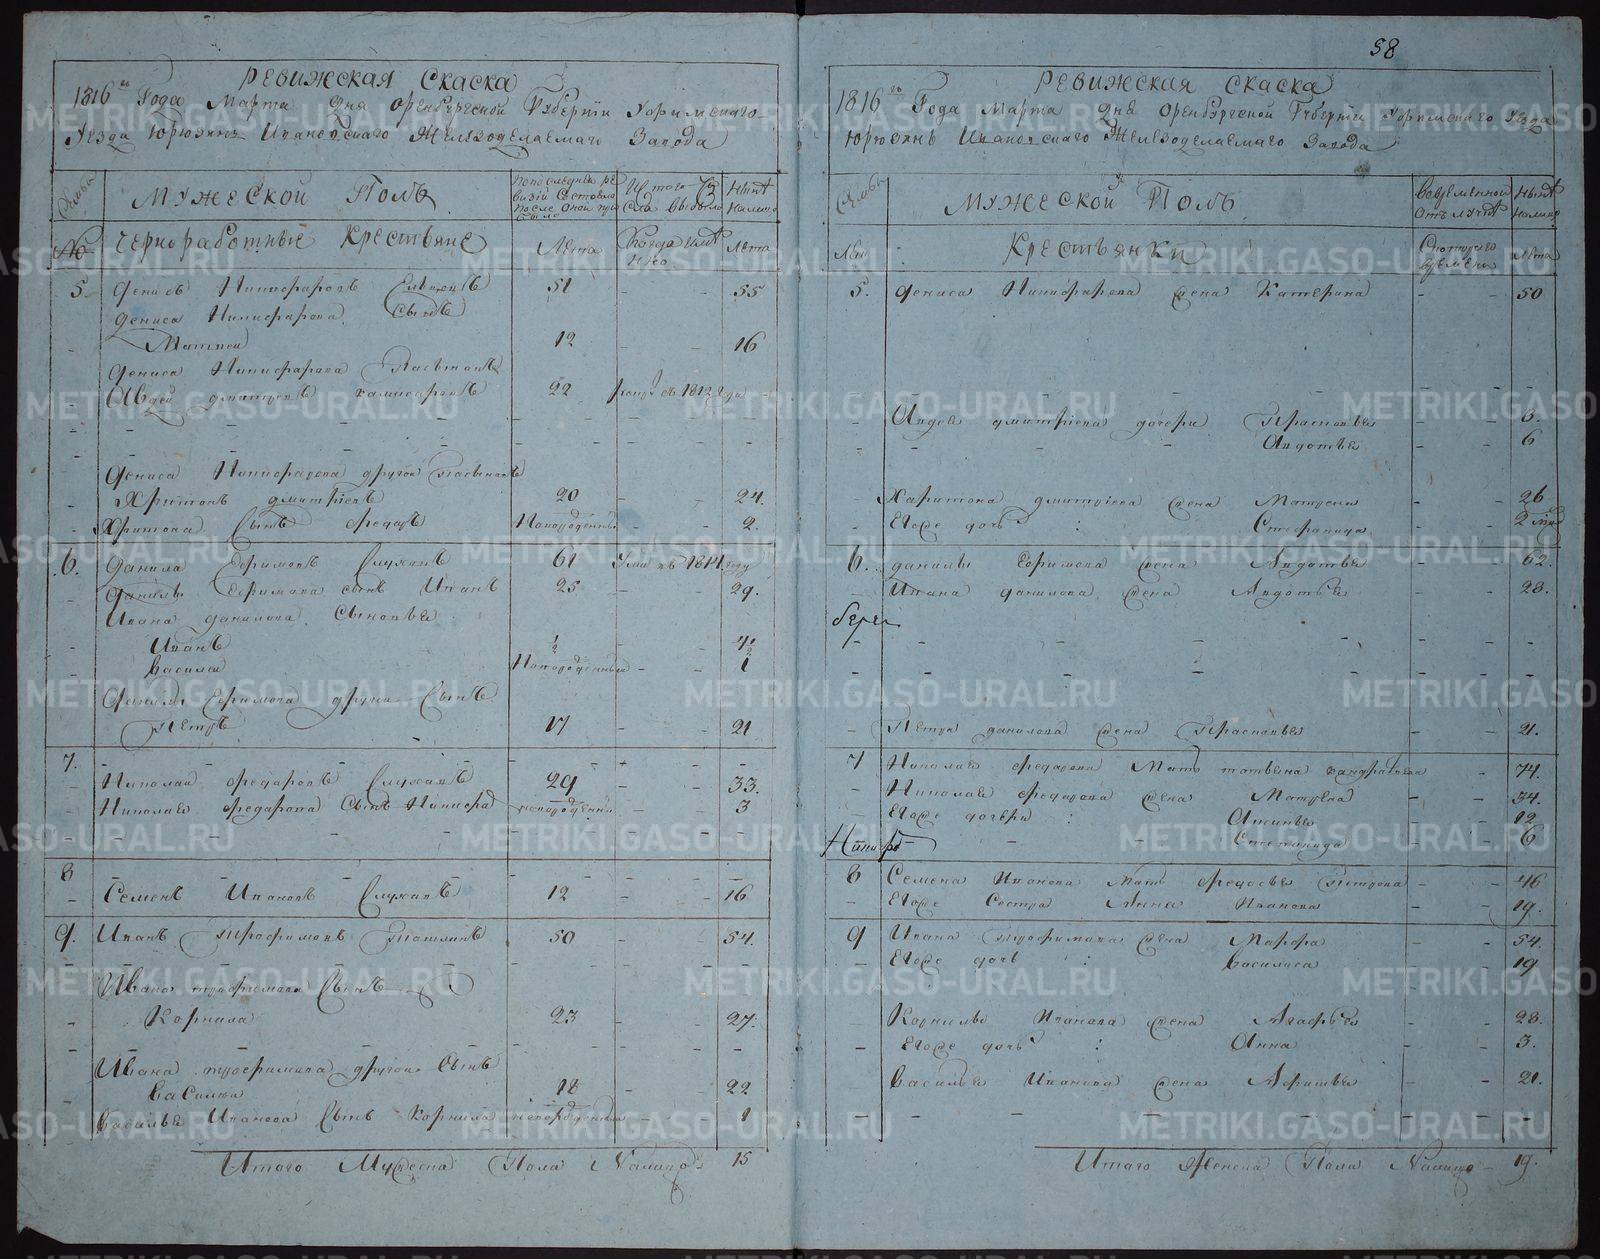 58
РЕВИЖСКАЯ СКАСКА
1816го Года Марта Дня Оренбургской Губернїи Уфимскаго
Уезда Юрюзянь Ивановскаго Желѣзоделаемаго Завода
Семьи
МУЖЕСКОЙ ПОЛЪ
Нынѣ налицо
№
Чернорабочные Крестьяне
Лѣта
Когда именно
Лѣта
5
Денисъ Никифоровъ
51 - - 55
Дениса Никифорова Сынъ
Матвей
12 16
Дениса Никифорова Пасынакъ
Авдей Дмитревъ
22 1812 года
Дениса Никифорова другой Пасынакъ
Харитонъ Дмитрiевъ
20 - - 24.
Хритона Сынъ Федоръ Новорожденный - 2.
6. Данила Ефимовъ Глуховъ 61 Умре въ 1814 году
Данилы Ефимова сынъ Иванъ 25 - 29.
Ивана Данилова Сыновья
Иванъ ½ 4½
Василей Новорожденный - - 1
Данилы Ефимова другой Сынъ
Петръ 17 - - 21
7.
Николай Федоровъ Глуховъ 29 - - 33.
Николая Федорова Сынъ Никифор новорожденный - 3
8
Семенъ Ивановъ Глуховъ 12 - - 16
9. Иванъ Трофимовъ 50 - - 54.
Ивана Трофимова Сынъ
Корнила 23 - - 27.
Ивана Трофимова другой Сынъ
Василий 18 22
Василья Иванова Сынъ Корнила новорожденный 1
Итого Мужеска Пола Налицо 15
РЕВИЖСКАЯ СКАСКА
1816го Года Марта Дня Оренбургской Губернїи Уфимскаго Уезда
Юрюзянь Ивановскаго Желѣзоделаемаго Завода
Семьи
МУЖЕСКОЙ ПОЛЪ
Вовременной отълучкѣ
Нынѣ налицо
Крестьянки
Скотораго времени
Лѣта
5. Дениса Никифорова жена Катерина - - 50
Авдея Дмитрiева дочери Прасковья 8.
Авдотья 6
Харитона Дмитрiева жена Матрена - - 26
Егоже дочь : Стефанида 2
6. Данилы Ефимова жена Авдотья - - 62.
Ивана Данилова жена Авдотья - - 28.
берег
Петра Данилова жена Прасковья 21.
7 Николая Федорова Мать Татьяна Кандратьева - 74.
Николая Федорова жена Матрена - - 34.
Егоже дочери : Аксинья 12
Никифор Степанида 6
8 Семена Иванова Мать Федосья Петрова 46
Егоже Сестра Анна Иванова - 19.
9 Ивана Трофимова жена Марфа - - 54.
Егоже дочь : Василиса 19
Корнилы Иванова жена Агафья - - 28.
Егоже дочь : Анна - - 3.
Василья Иванова жена Афимья - - 21.
Итого Женска Пола Налицо - 19.
METRIKI.GASO-URAL.RU